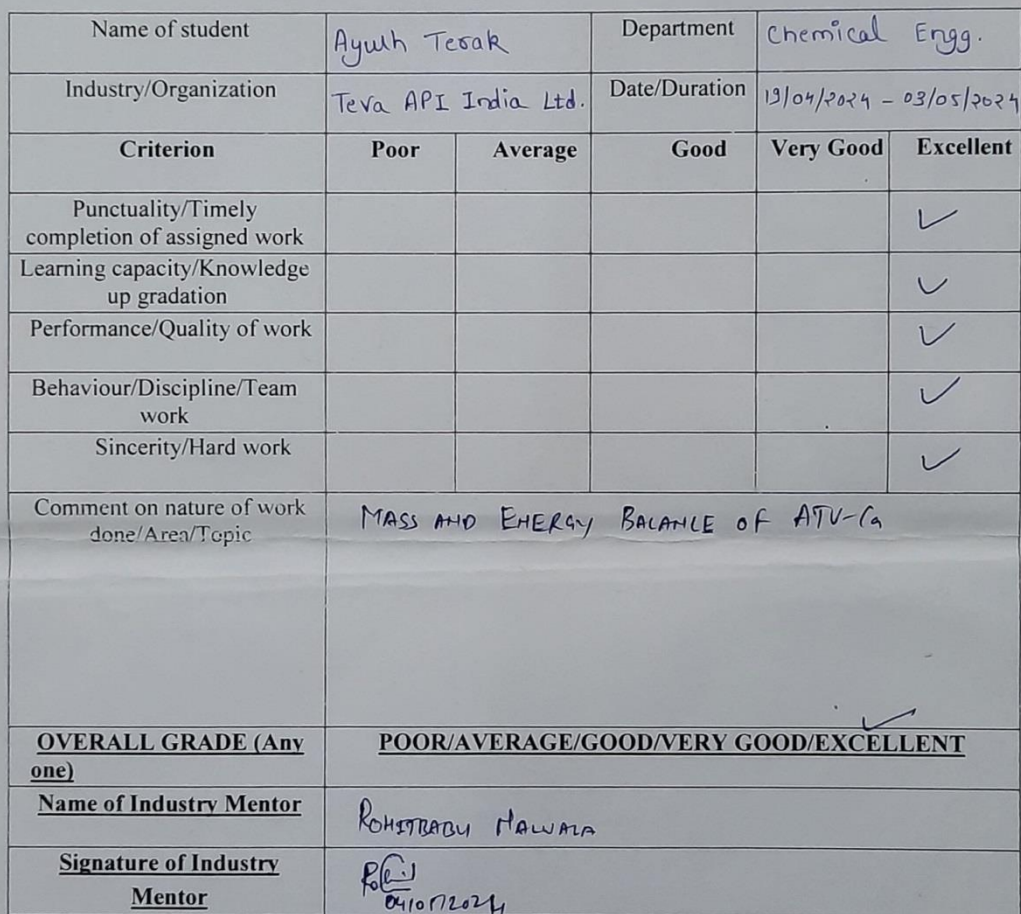 Name of student Ayush Terak Department Chemical Engg.
Industry/Organization Teva API India Ltd. Date/Duration 19/04/2024 - 03/05/2024
Criterion Poor Average Good Very Good Excellent
Punctuality/Timely
completion of assigned work ✓
Learning capacity/Knowledge
up gradation ✓
Performance/Quality of work ✓
Behaviour/Discipline/Team
work ✓
Sincerity/Hard work ✓
Comment on nature of work MASS AND ENERGY BALANCE OF ATV-Ca
done/Area/Topic
OVERALL GRADE (Any POOR/AVERAGE/GOOD/VERY GOOD/EXCELLENT ✓
one)
Name of Industry Mentor
ROHITBABU
Signature of Industry
Mentor 04/05/2024